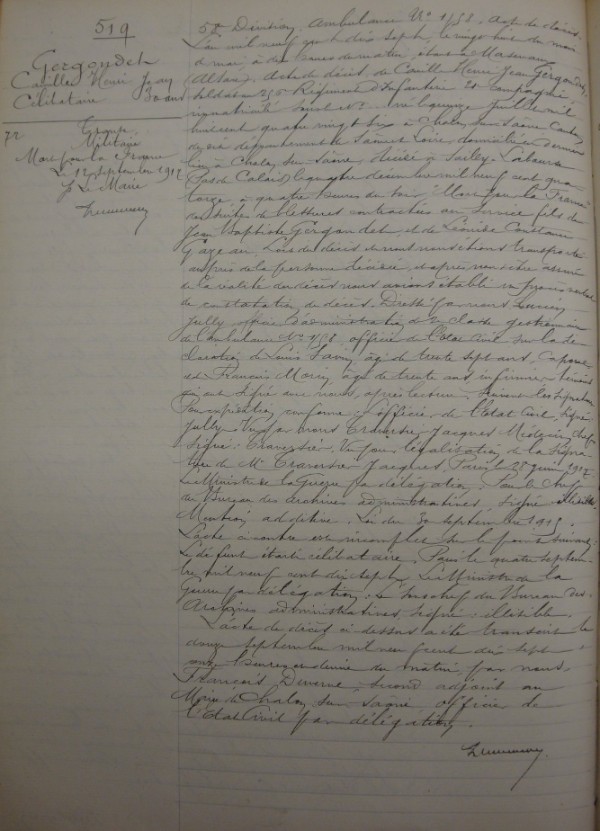 519
Gergondet
Camille Henri Jean
Célibataire 30 ans
72
Militaire
Mort pour la France
Le 12 Septembre 1917
Le Maire
58e Division. Ambulance No 1/58. Acte de décès.
L'an mil neuf cent dix sept, le vingt huit du mois
de mai, à dix heures du matin, étant à Massevaux
Alsace. Acte de décès de Camille Henri Jean Gergondet
soldat Régiment d'Infanterie 21e Compagnie
immatriculé né le quinze Juillet mil
huit cent quatre vingt six à Chalon sur Saône Canton
du dit département de Saône et Loire, domicilié en dernier
lieu à Chalon sur Saône, décédé à Sailly-Labourse
(Pas de Calais) le quatre décembre mil neuf cent qua
torze à quatre heures du soir "Mort pour la France"
des suites de blessures contractées au service fils de
Jean Baptiste Gergondet et de Léonide Constance
Gazeau. Lors du décès ne nous étions transporté
auprès de la personne décédée, et après nous être assuré
de la réalité du décès nous avions établi un procès verbal
de constatation de décès. Dressé par nous, Lucien
Jully officier d'administration de 2e classe gestionnaire
de l'ambulance No 1/58, officier de l'état civil sur la dé
claration de Louis âgé de trente sept ans, Caporal
et François Morin, âgé de trente ans infirmier, témoins
qui ont signé avec nous, après lecture. Suivent les signatures
Pour expédition conforme, l'officier de l'Etat Civil, signé
Jully. Vu par nous Traversier Jacques Médecin Chef
signé: Traversier. Vu pour légalisation de la signa
ture de Mr Traversier Jacques, Paris le 28 juin 1917
Le Ministre de la Guerre par délégation. Pour le chef
du Bureau des Archives administratives, signé illisible.
Mention additive. Loi du 30 septembre 1915.
L'acte ci-contre est incomplet sur le point suivant:
Le défunt était célibataire. Paris le quatre septem
bre mil neuf cent dix sept. Le Ministre de la
Guerre par délégation, le Sous chef du Bureau des
Archives administratives, signé: illisible.
L'acte de décès ci dessus a été transcrit le
douze septembre mil neuf cent dix sept
onze heures et demie du matin, par nous
François Deverne, second adjoint au
Maire de Chalon sur Saône officier de
l'Etat Civil par délégation.